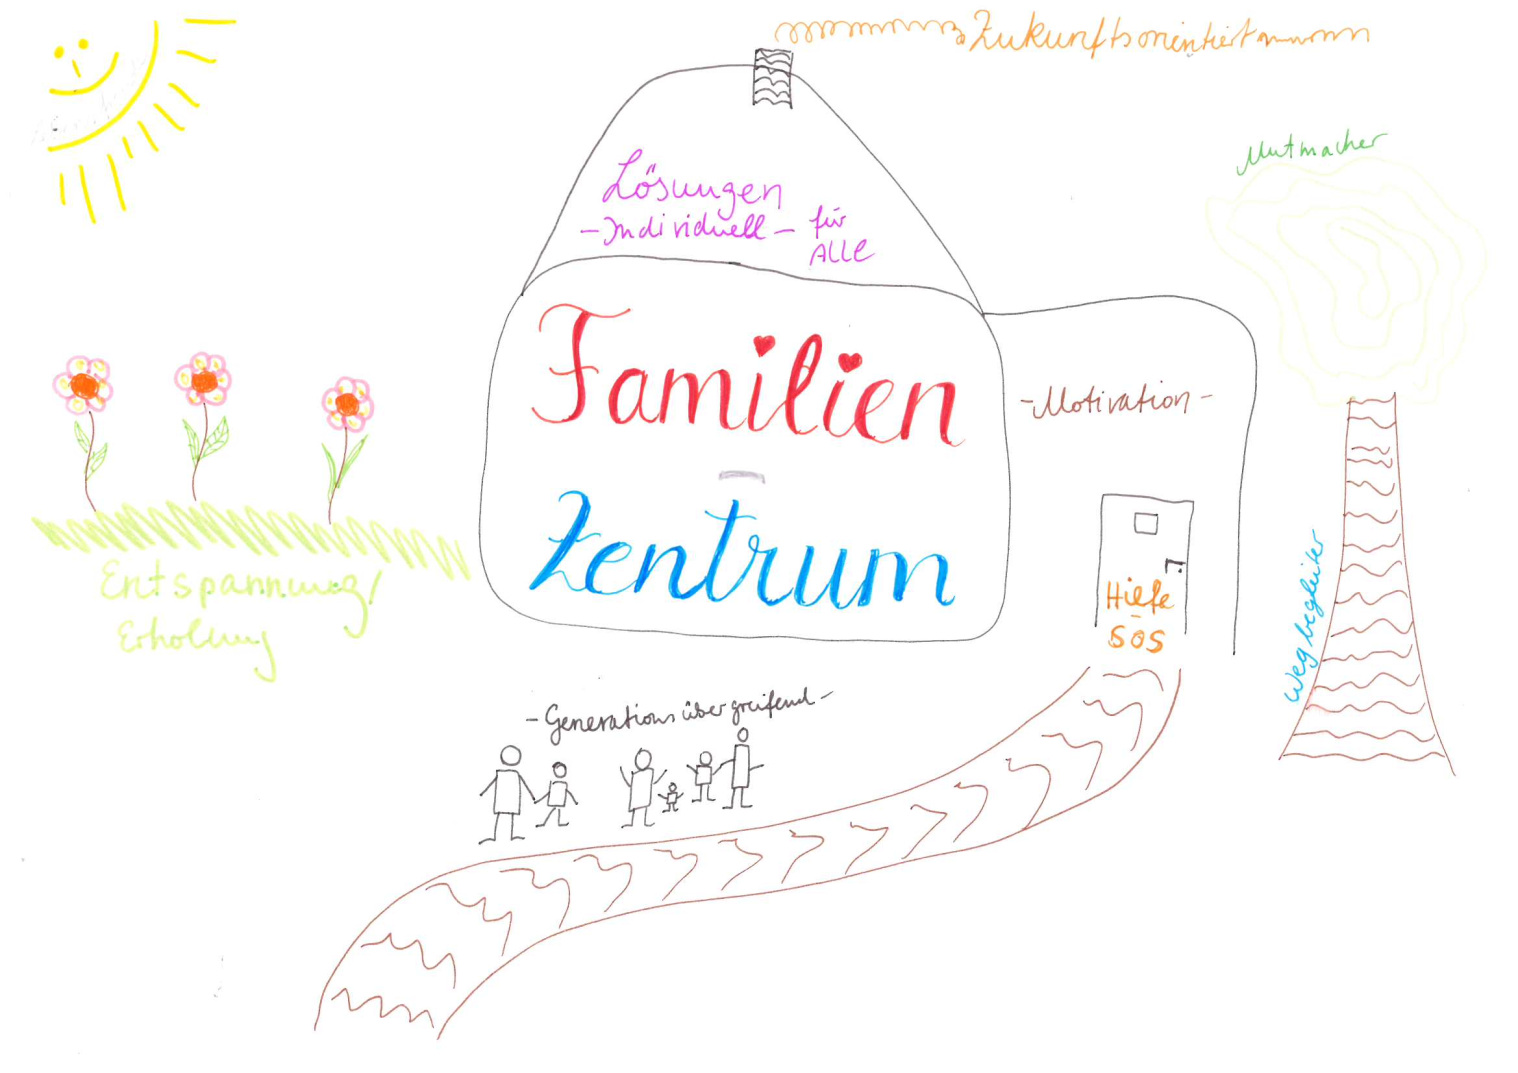 Zukunftsorientiert
Mutmacher
Lösungen
- Individuell - für
ALLE
Familien
-
Zentrum
- Motivation -
Hilfe
-
SOS
Wegbegleiter
Entspannung/
Erholung
- Generationsübergreifend -